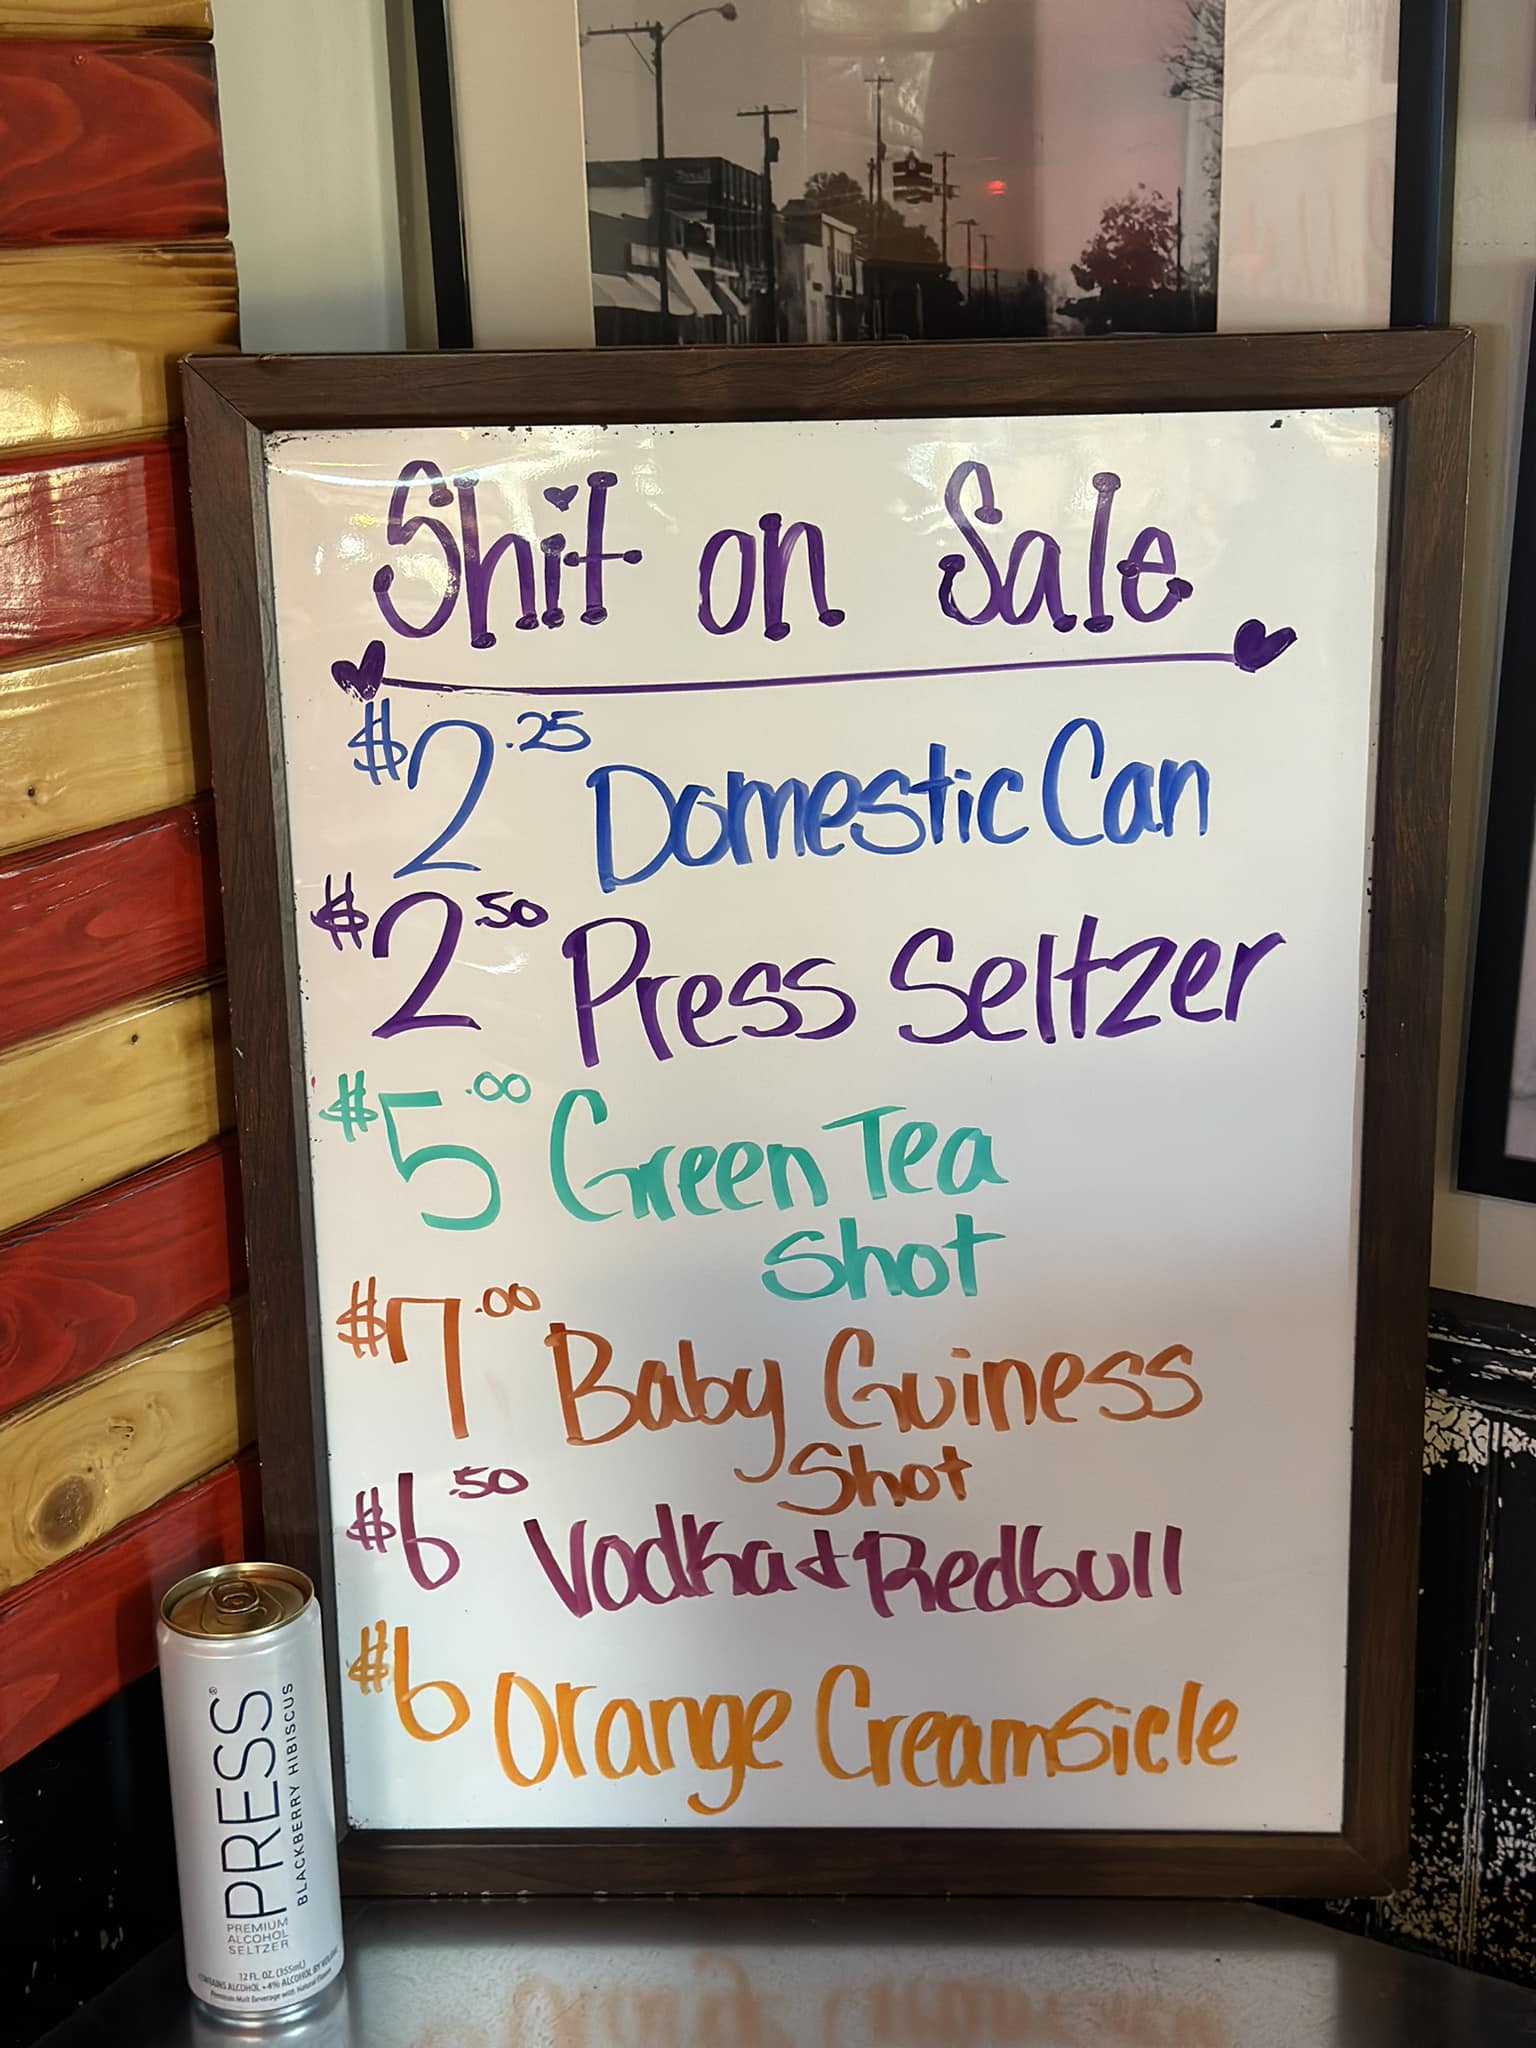 Shit on Sale
$2.25 Domestic Can
$2.50 Press Seltzer
$5.00 Green Tea
Shot
$7.00 Baby Guiness
Shot
$6.50 Vodka + Redbull
$6 Orange Creamsicle
PRESS®
BLACKBERRY HIBISCUS
PREMIUM
ALCOHOL
SELTZER
12 FL. OZ. (355mL)
CONTAINS ALCOHOL • 4% ALCOHOL BY VOLUME
Premium Malt Beverage with Natural Flavors